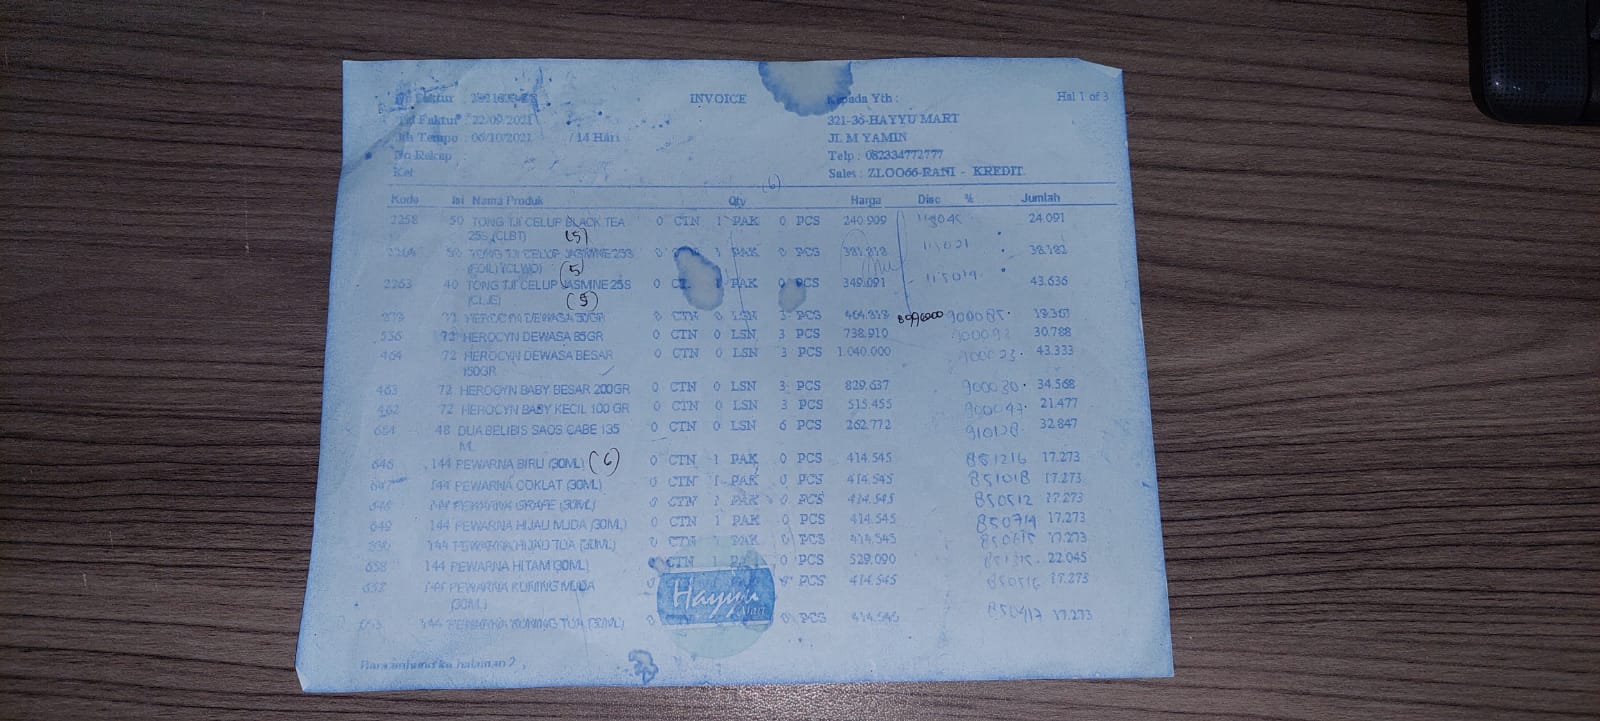 INVOICE
Hal 1 of 3
Faktur :
Kepada Yth :
Tgl Faktur : 22/09/2021
321-36-HAYYU MART
Jth Tempo : 06/10/2021 / 14 Hari
JL M YAMIN
Do Rekap
Telp : 082334772777
Ket
Sales : ZLOO66-RANI - KREDIT
(6)
Kode Isi Nama Produk Qty Harga Disc % Jumlah
2258 50 TONG TJI CELUP BLACK TEA 0 CTN 1 PAK 0 PCS 240.909 24.091
25S (CLBT) (5)
50 TONG TJI CELUP JASMINE 25S 0 1 PAK 0 PCS 381.818 38.182
(5)
2263 40 TONG TJI CELUP JASMINE 25S 0 PAK 0 PCS 349.091 43.636
(CLJE) (5)
HEROCYN DEWASA 0 CTN 0 LSN 3 PCS 8996000 900085
536 72 HEROCYN DEWASA 85GR 0 CTN 0 LSN 3 PCS 738.910 30.788
464 72 HEROCYN DEWASA BESAR 0 CTN 0 LSN 3 PCS 1.040.000 900023 43.333
150GR
463 72 HEROCYN BABY BESAR 200GR 0 CTN 0 LSN 3 PCS 829.637 900030 34.568
462 72 HEROCYN BABY KECIL 100 GR 0 CTN 0 LSN 3 PCS 515.455 900047 21.477
684 48 DUA BELIBIS SAOS CABE 135 0 CTN 0 LSN 6 PCS 262.772 910128 32.847
M
646 144 PEWARNA BIRU (30ML) (6) 0 CTN 1 PAK 0 PCS 414.545 851216 17.273
647 144 PEWARNA COKLAT (30ML) 0 CTN 1 PAK 0 PCS 414.545 851018 17.273
144 PEWARNA GRAPE (30ML) 0 CTN 1 PAK 0 PCS 414.545 850512 17.273
649 144 PEWARNA HIJAU MUDA (30ML) 0 CTN 1 PAK 0 PCS 414.545 850714 17.273
144 PEWARNA HIJAU TUA (30ML) 0 CTN 1 PAK 0 PCS 414.545 17.273
658 144 PEWARNA HITAM (30ML) CTN 0 PCS 529.090 22.045
652 144 PEWARNA KUNING MUDA PCS 414.545 850516 17.273
(30ML)
653 144 PEWARNA KUNING TUA (30ML) 0 PCS 414.545 850417 17.273
Hayyu
Mart
Bersambung ke halaman 2